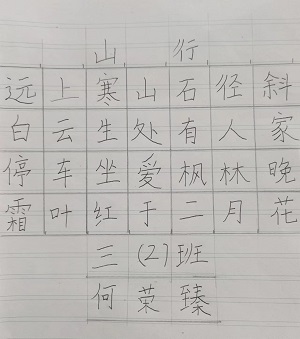 山行
远上寒山石径斜
白云生处有人家
停车坐爱枫林晚
霜叶红于二月花
三(2)班
何荣臻